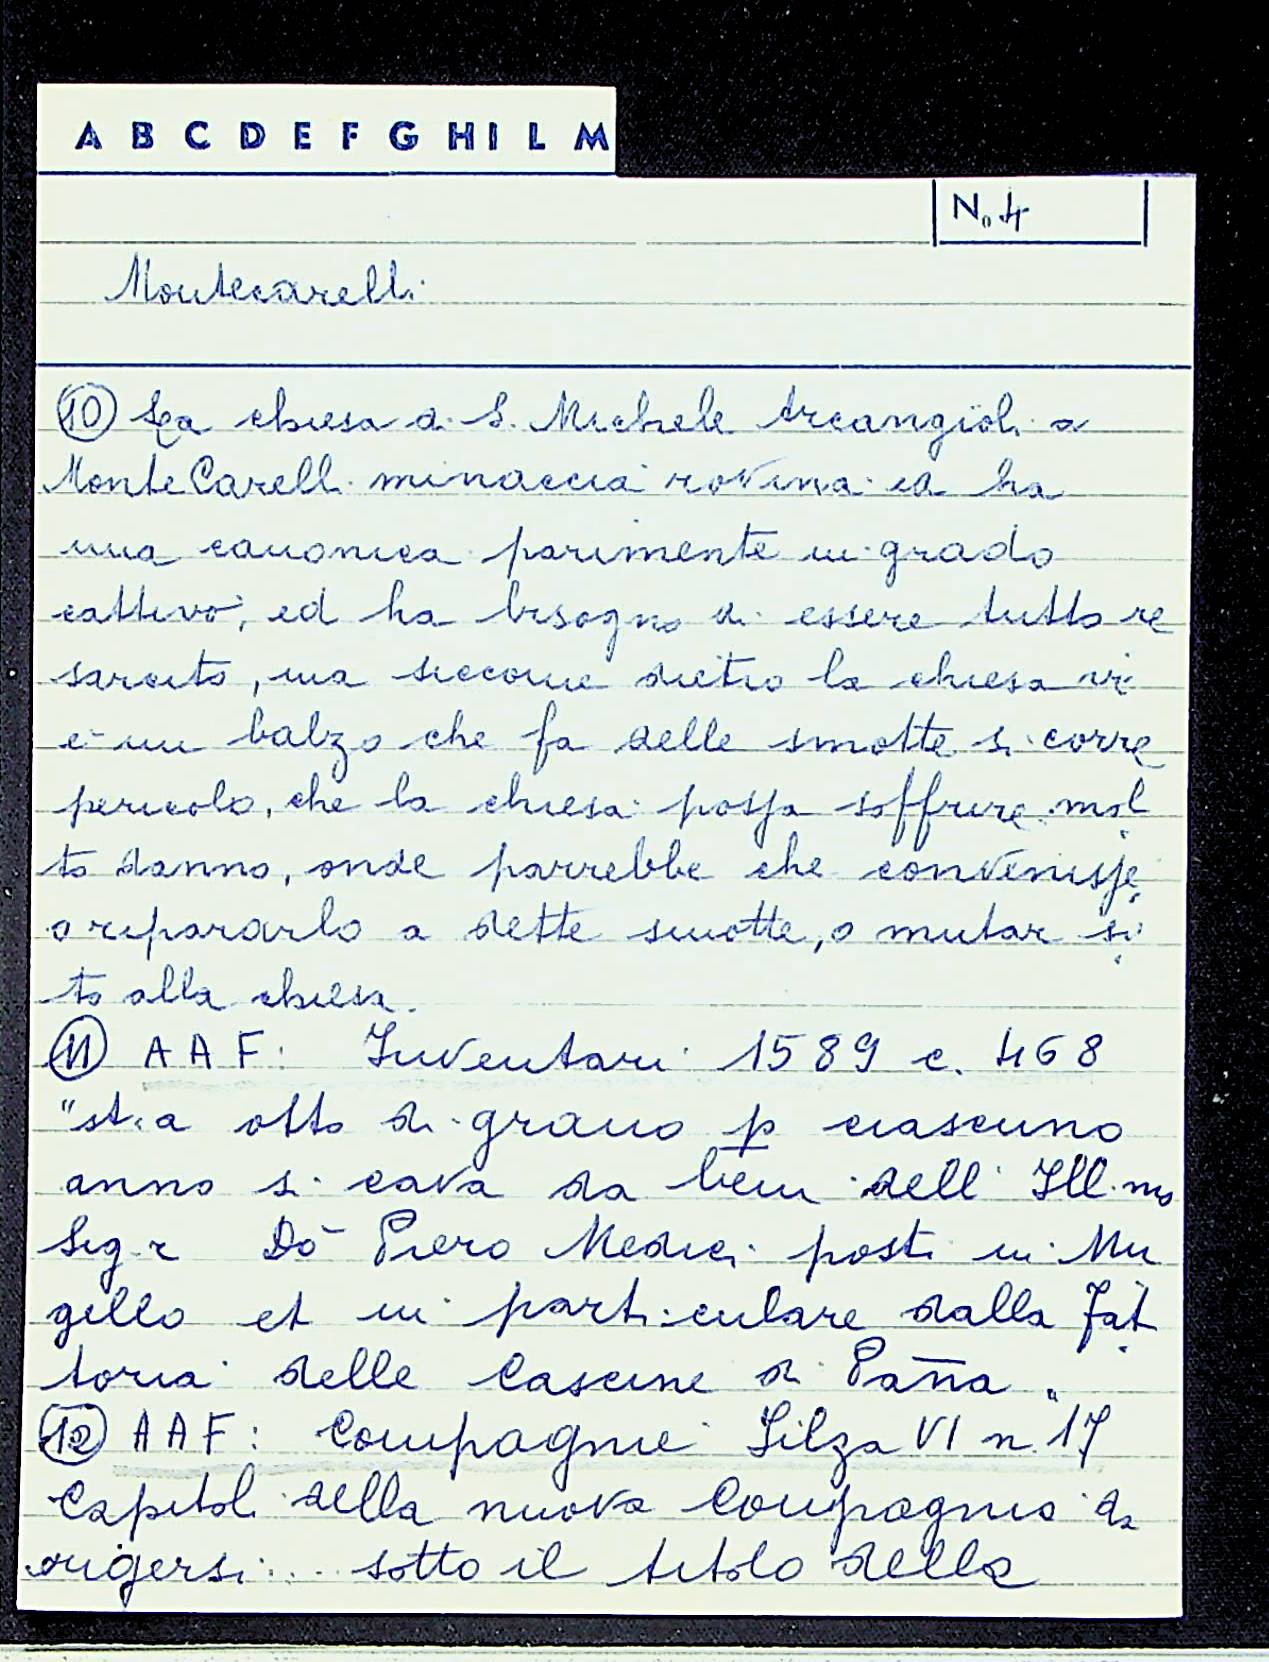 A B C D E F G H I L M
N. 4
Montecarelli
⑩ La chiesa di S. Michele Arcangioli a
Monte Carelli minaccia rovina ed ha
una canonica parimente in grado
cattivo, ed ha bisogno di essere tutto re
sarcito, ma siccome dietro la chiesa vi
è un balzo che fa delle smotte si corre
pericolo, che la chiesa possa soffrire mol
to danno, onde parrebbe che convenisse
o ripararlo a dette smotte, o mutar si
to alla chiesa.
⑪ AAF: Inventari 1589 c. 468
"st.a otto di grano p ciascuno
anno si cava da beni dell' Ill.mo
Sig.r Dō Piero Medici posti in Mu
gello et in particulare dalla Fat
toria delle Cascine di Pan̄a "
⑫ AAF: Compagnie Filza VI n. 17
Capitoli della nuova Compagnia da
erigersi .... sotto il titolo della